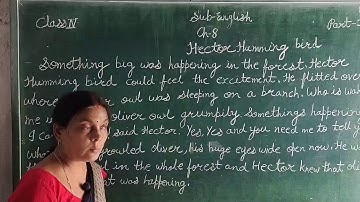 Class IV Sub-English Part-
Ch-8
Hector Humming bird
Something big was happening in the forest. Hector
Humming bird could feel the excitement. He flitted over
where oliver owl was sleeping on a branch. Who is wak
me oliver owl grumpily Somethings happening
I ca said Hector. Yes, Yes and you need me to tell
Wh growled oliver, his huge eyes wide open now. He w
in the whole forest and Hector knew that
at was happening.